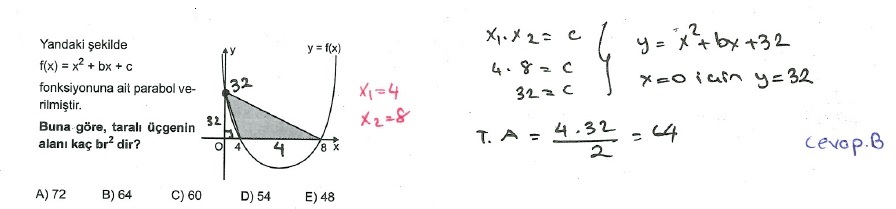 Yandaki şekilde
f(x) = x² + bx + c
fonksiyonuna ait parabol ve-
rilmiştir.
Buna göre, taralı üçgenin
alanı kaç br² dir?
y
y = f(x)
32
32
O 4 4 8 x
x₁=4
x₂=8
A) 72 B) 64 C) 60 D) 54 E) 48
x₁.x₂= c
4.8 = c
32 = c
y = x²+bx+32
x=0 için y=32
T.A = 4.32 / 2 = 64
cevap.B